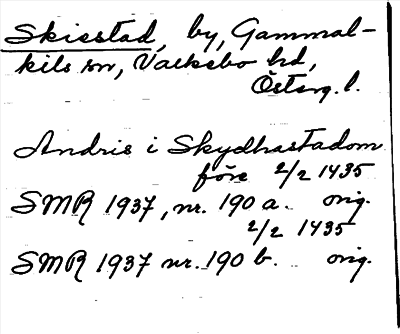 Skiestad, by, Gammal-
kils sn, Valkebo hd,
Österg. l.
Andris i Skydhastadom
före 2/2 1435
SMR 1937, nr. 190 a. orig.
2/2 1435
SMR 1937 nr. 190 b. orig.